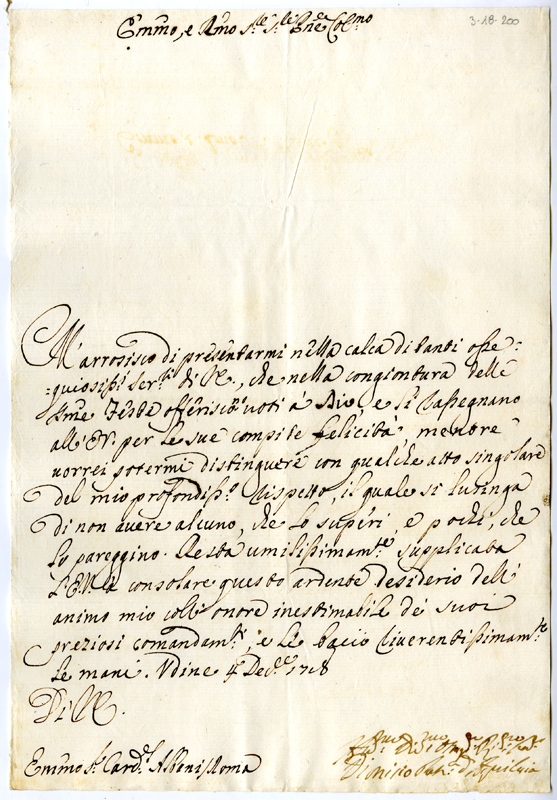 3-18-200
Emmo, e Rmo Sre Sre Pne Colmo
M'arrosisco di presentarmi nella calca di tanti osse=
=quiosissi. Seri. di V.E., che nella congiontura delle
Sme Feste offeriscon voti à Dio, e si rassegnano
all'E.V. per le sue compite felicità, mentre
vorrei potermi distinguere con qualche atto singolare
del mio profondiss.o rispetto, il quale si lusinga
di non avere alcuno, che lo superi, e pochi, che
lo pareggino. Resta umilissimam.te supplicata
l'E.V. à consolare questo ardente desiderio dell'
animo mio coll'onore inestimabile de suoi
preziosi comandam.ti, e le bacio riverentissimam.te
le mani. Udine 4 Dec.e 1718
Di V.E.
Emmo Sr. Card.l Albani Roma
Dionisio Patr.a d'Aquileia